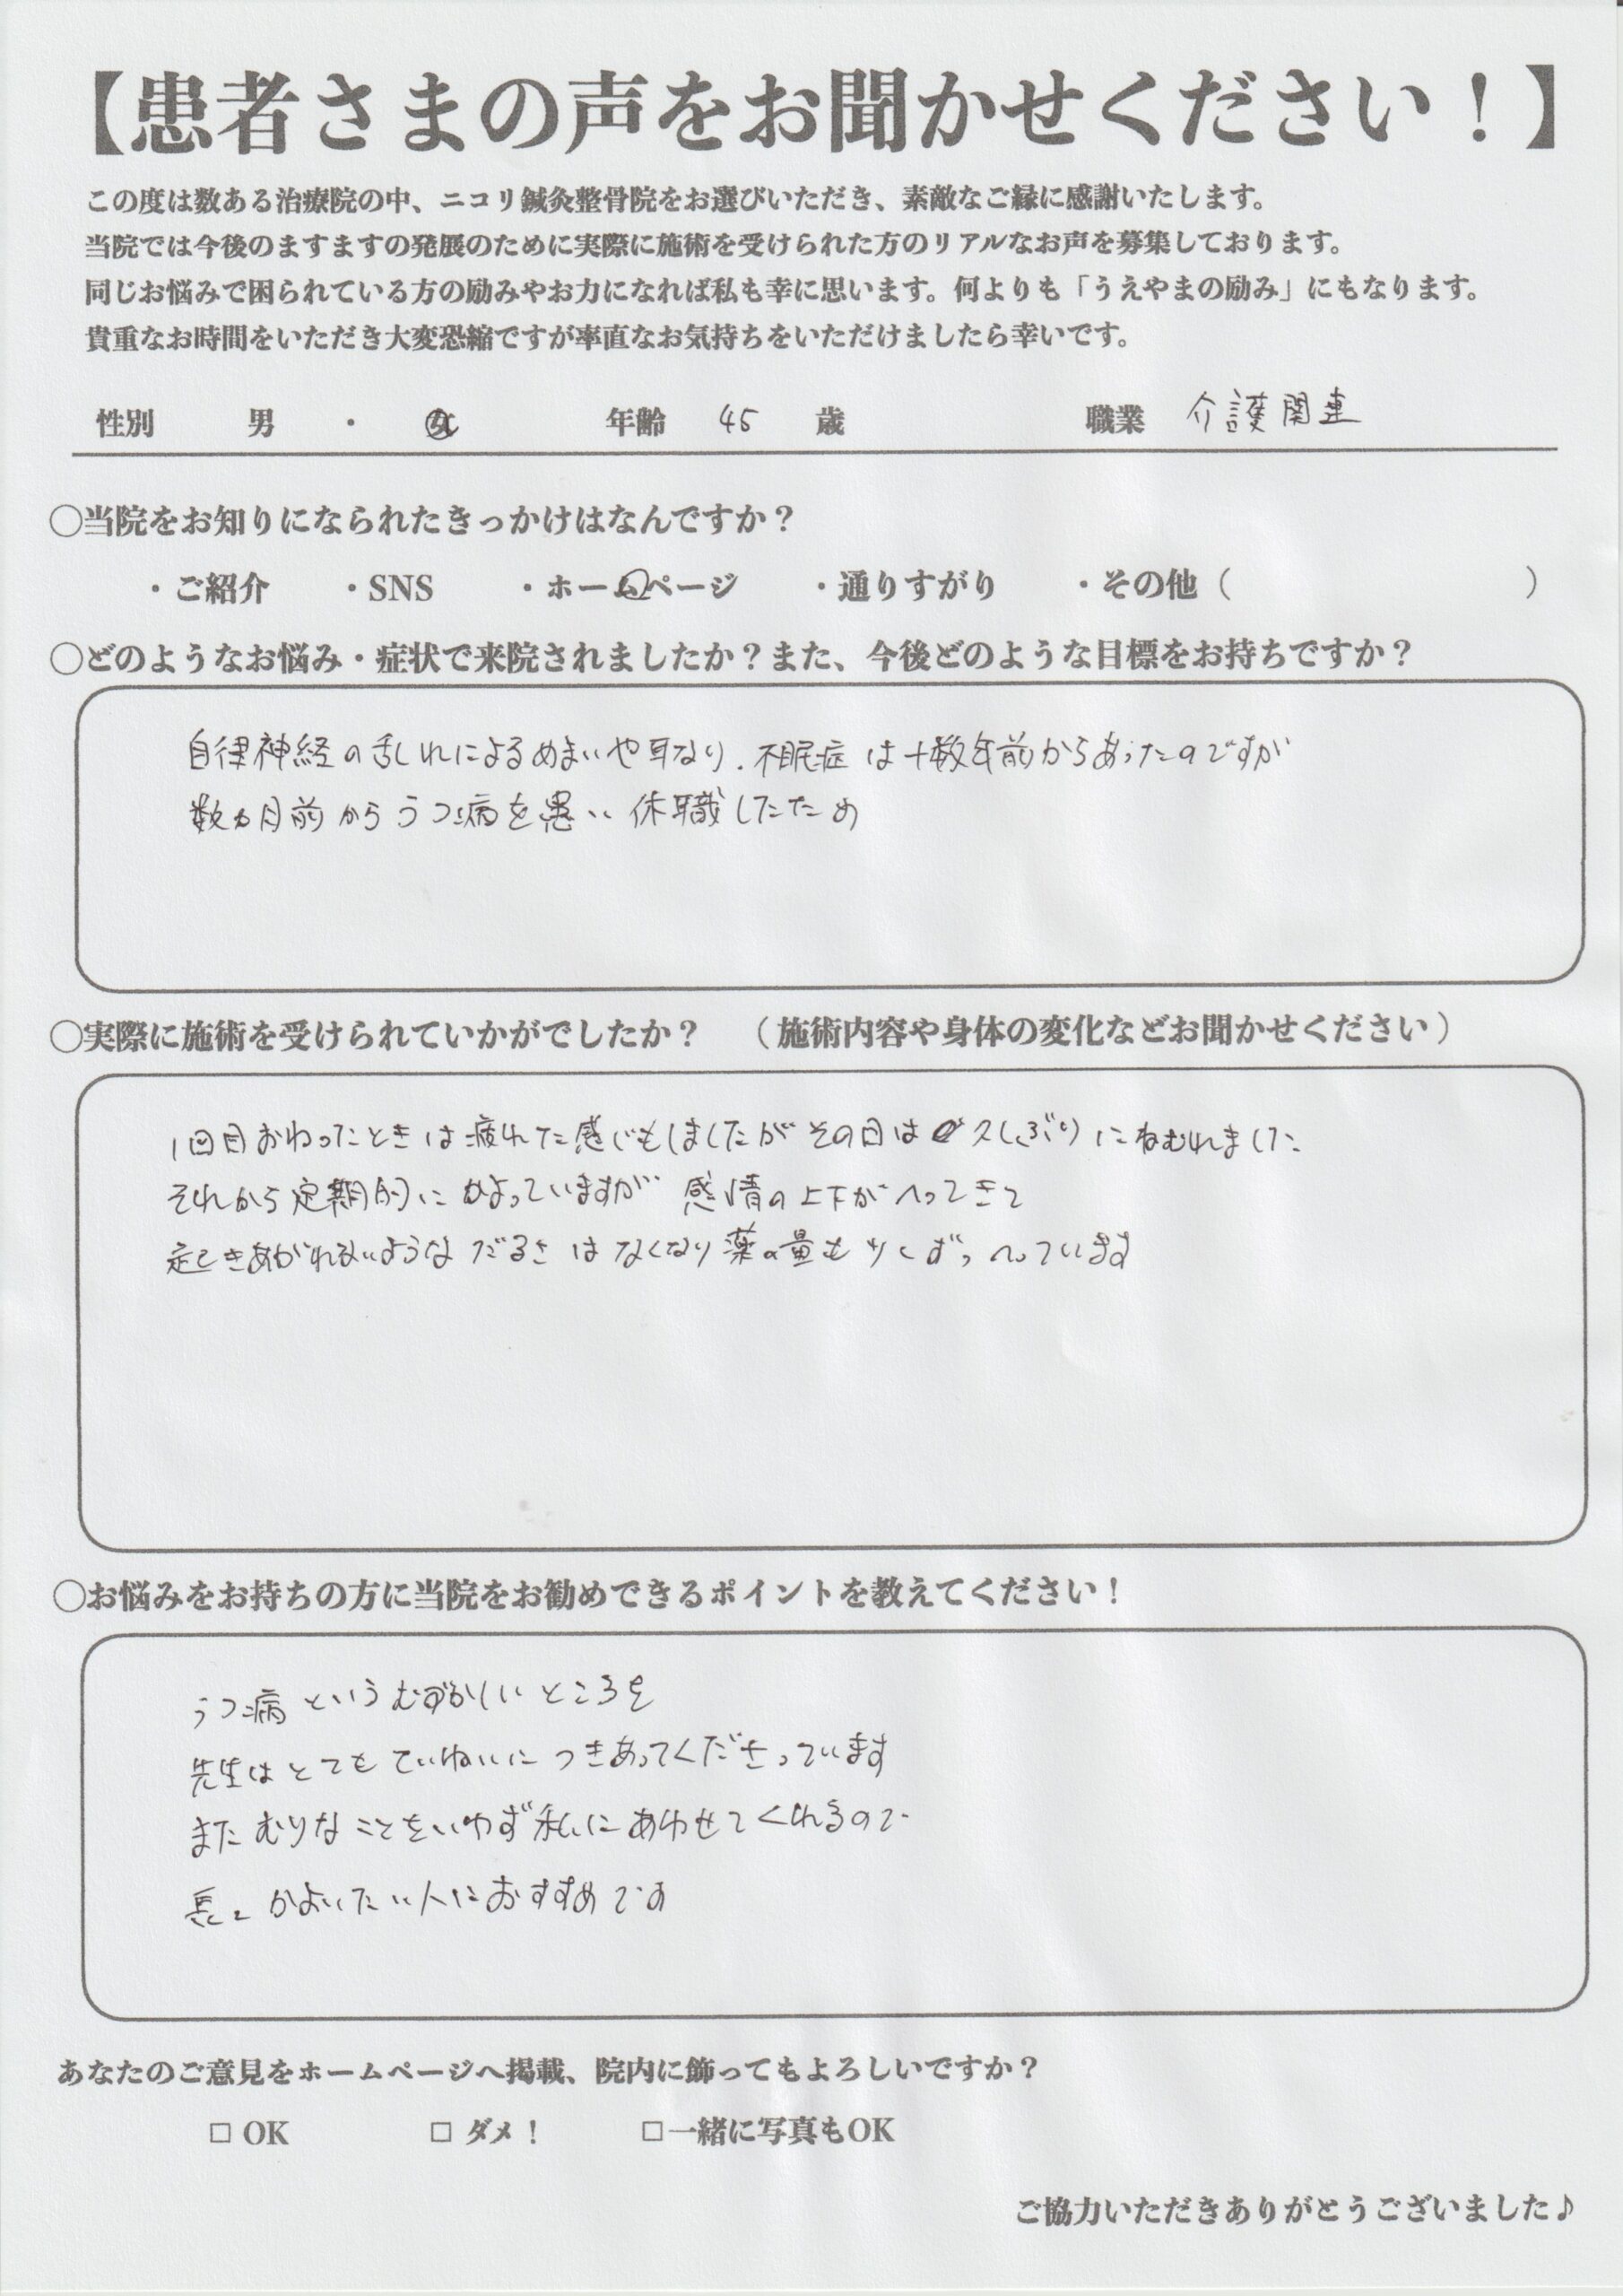 【患者さまの声をお聞かせください！】
この度は数ある治療院の中、ニコリ鍼灸整骨院をお選びいただき、素敵なご縁に感謝いたします。
当院では今後のますますの発展のために実際に施術を受けられた方のリアルなお声を募集しております。
同じお悩みで困られている方の励みやお力になれば私も幸に思います。何よりも「うえやまの励み」にもなります。
貴重なお時間をいただき大変恐縮ですが率直なお気持ちをいただけましたら幸いです。
性別 男 ・ 女 年齢 45 歳 職業 介護関連
○当院をお知りになられたきっかけはなんですか？
・ご紹介 ・SNS ・ホームページ ・通りすがり ・その他（ ）
○どのようなお悩み・症状で来院されましたか？また、今後どのような目標をお持ちですか？
自律神経の乱れによるめまいや耳なり、不眠症は十数年前からあったのですが
数ヵ月前からうつ病を患い休職したため
○実際に施術を受けられていかがでしたか？ （施術内容や身体の変化などお聞かせください）
1回目おわったときは疲れた感じもしましたがその日は久しぶりにねむれました
それから定期的にかよっていますが感情の上下がへってきて
起きあがれないようなだるさはなくなり薬の量も少しずつへっています
○お悩みをお持ちの方に当院をお勧めできるポイントを教えてください！
うつ病というむずかしいところを
先生はとてもていねいにつきあってくださっています
またむりなことをいわず私にあわせてくれるので
長くかよいたい人におすすめです
あなたのご意見をホームページへ掲載、院内に飾ってもよろしいですか？
□ OK □ ダメ！ □一緒に写真もOK
ご協力いただきありがとうございました♪